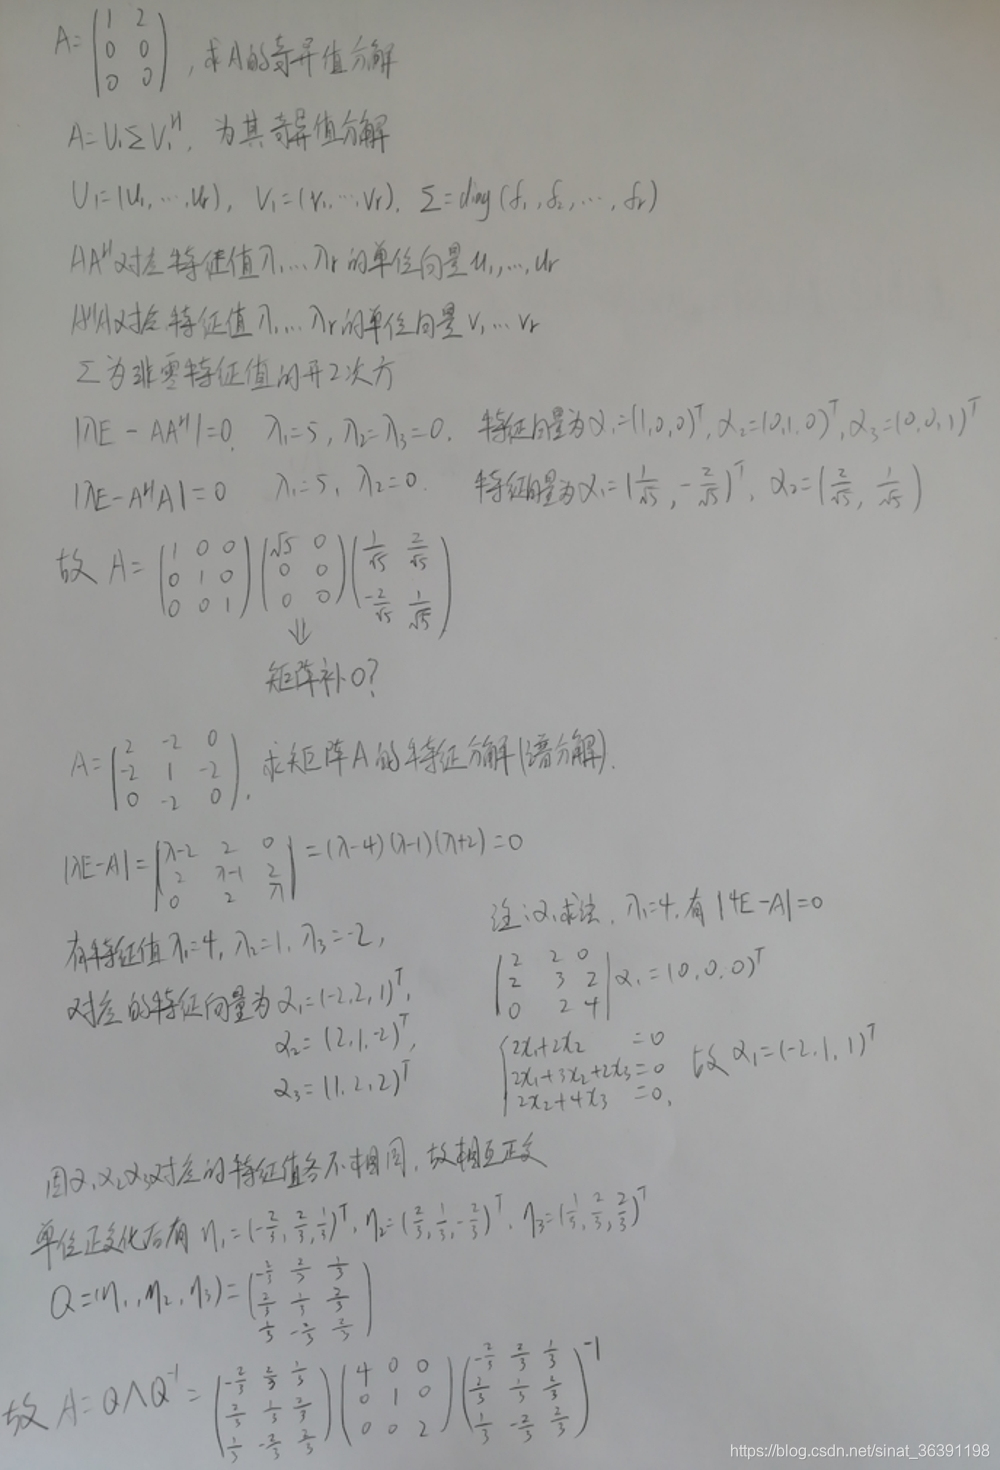 A=(1 2
0 0
0 0), 求A的奇异值分解
A=U₁ΣV₁ᴴ, 为其奇异值分解
U₁=(u₁,…,ur), V₁=(v₁,…,vr), Σ=diag(δ₁,δ₂,…,δr)
AAᴴ对应特征值λ₁…λr的单位向量u₁,…,ur
AᴴA对应特征值λ₁…λr的单位向量v₁…vr
Σ为非零特征值的开2次方
|λE-AAᴴ|=0, λ₁=5, λ₂=λ₃=0. 特征向量为α₁=(1,0,0)ᵀ, α₂=(0,1,0)ᵀ, α₃=(0,0,1)ᵀ
|λE-AᴴA|=0 λ₁=5, λ₂=0. 特征向量为α₁=(1/√5, -2/√5)ᵀ, α₂=(2/√5, 1/√5)
故 A=(1 0 0
0 1 0
0 0 1)(√5 0
0 0
0 0)(1/√5 2/√5
-2/√5 1/√5)
⇓
矩阵补0?
A=(2 -2 0
-2 1 -2
0 -2 0), 求矩阵A的特征分解(谱分解).
|λE-A|=|λ-2 2 0
2 λ-1 2
0 2 λ|=(λ-4)(λ-1)(λ+2)=0
有特征值λ₁=4, λ₂=1, λ₃=-2,
对应的特征向量为α₁=(-2,2,1)ᵀ,
α₂=(2,1,-2)ᵀ,
α₃=(1,2,2)ᵀ
注:α₁求法, λ₁=4, 有|4E-A|=0
|2 2 0
2 3 2
0 2 4|α₁=(0,0,0)ᵀ
{2x₁+2x₂ =0
2x₁+3x₂+2x₃=0
2x₂+4x₃ =0, 故α₁=(-2,1,1)ᵀ
因α₁α₂α₃对应的特征值各不相同, 故相互正交
单位正交化后有 η₁=(-2/3,2/3,1/3)ᵀ, η₂=(2/3,1/3,-2/3)ᵀ, η₃=(1/3,2/3,2/3)ᵀ
Q=(η₁,η₂,η₃)=(-2/3 2/3 1/3
2/3 1/3 2/3
1/3 -2/3 2/3)
故 A=QΛQ⁻¹=(-2/3 2/3 1/3
2/3 1/3 2/3
1/3 -2/3 2/3)(4 0 0
0 1 0
0 0 2)(-2/3 2/3 1/3
2/3 1/3 2/3
1/3 -2/3 2/3)⁻¹
https://blog.csdn.net/sinat_36391198